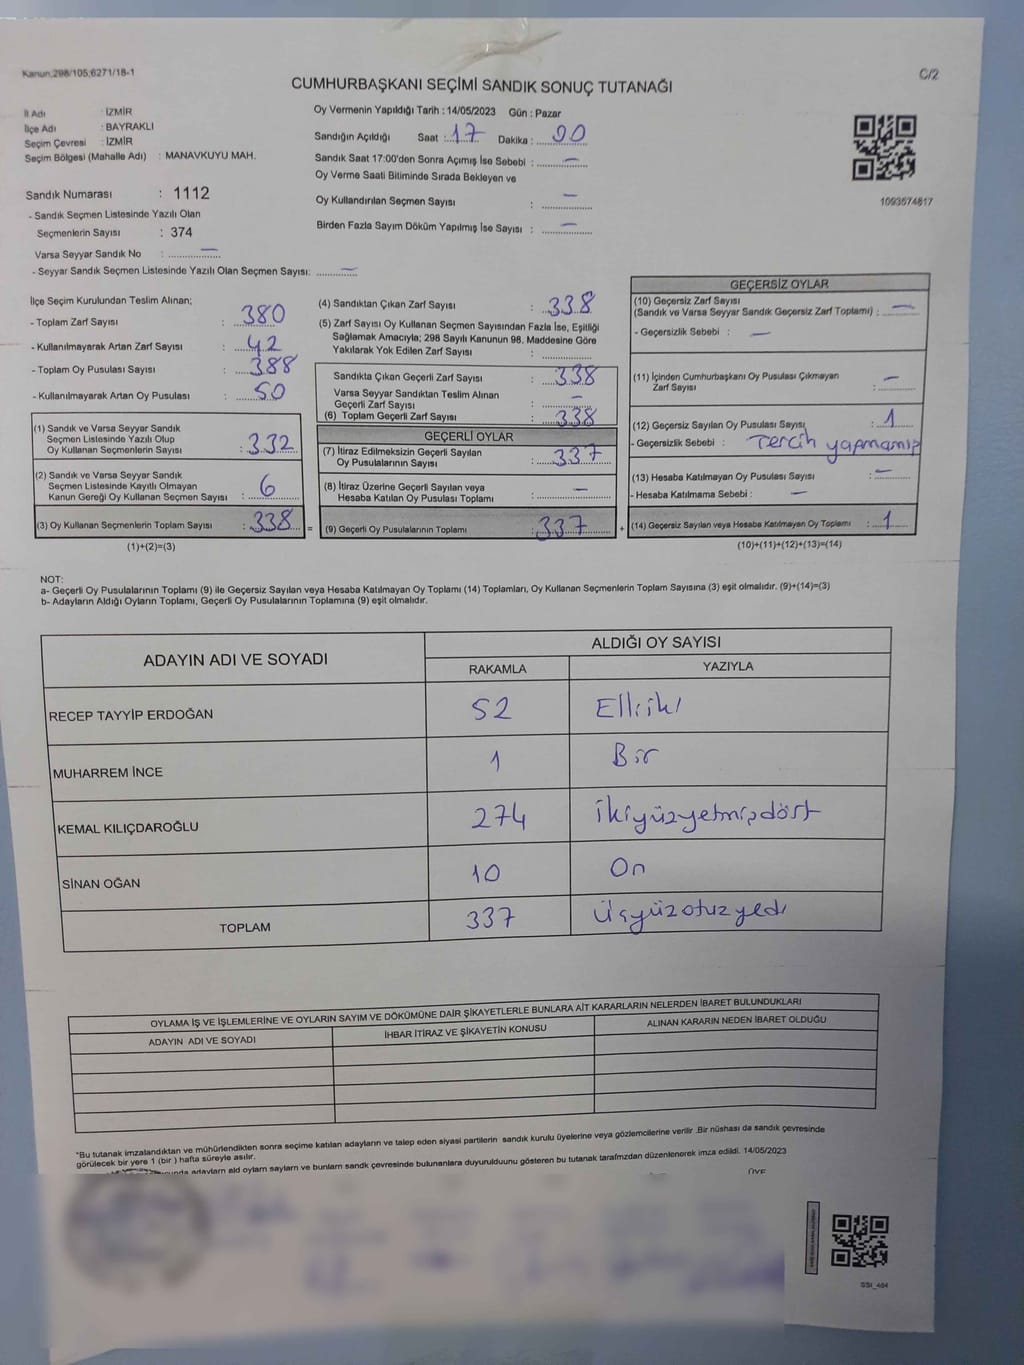 Kanun;298/105;6271/18-1
C/2
CUMHURBAŞKANI SEÇİMİ SANDIK SONUÇ TUTANAĞI
İl Adı : İZMİR
İlçe Adı : BAYRAKLI
Seçim Çevresi : İZMİR
Seçim Bölgesi (Mahalle Adı) : MANAVKUYU MAH.
Oy Vermenin Yapıldığı Tarih : 14/05/2023 Gün : Pazar
Sandığın Açıldığı Saat : 17 Dakika : 00
Sandık Saat 17:00'den Sonra Açımış İse Sebebi : —
Oy Verme Saati Bitiminde Sırada Bekleyen ve
Oy Kullandırılan Seçmen Sayısı : —
Birden Fazla Sayım Döküm Yapılmış İse Sayısı : —
1093574817
Sandık Numarası : 1112
- Sandık Seçmen Listesinde Yazılı Olan
Seçmenlerin Sayısı : 374
Varsa Seyyar Sandık No : —
- Seyyar Sandık Seçmen Listesinde Yazılı Olan Seçmen Sayısı: —
İlçe Seçim Kurulundan Teslim Alınan;
- Toplam Zarf Sayısı : 380
- Kullanılmayarak Artan Zarf Sayısı : 42
- Toplam Oy Pusulası Sayısı : 388
- Kullanılmayarak Artan Oy Pusulası : 50
(1) Sandık ve Varsa Seyyar Sandık
Seçmen Listesinde Yazılı Olup
Oy Kullanan Seçmenlerin Sayısı : 332
(2) Sandık ve Varsa Seyyar Sandık
Seçmen Listesinde Kayıtlı Olmayan
Kanun Gereği Oy Kullanan Seçmen Sayısı : 6
(3) Oy Kullanan Seçmenlerin Toplam Sayısı : 338 =
(1)+(2)=(3)
(4) Sandıktan Çıkan Zarf Sayısı : 338
(5) Zarf Sayısı Oy Kullanan Seçmen Sayısından Fazla İse, Eşitliği
Sağlamak Amacıyla; 298 Sayılı Kanunun 98. Maddesine Göre
Yakılarak Yok Edilen Zarf Sayısı :
Sandıkta Çıkan Geçerli Zarf Sayısı : 338
Varsa Seyyar Sandıktan Teslim Alınan
Geçerli Zarf Sayısı : —
(6) Toplam Geçerli Zarf Sayısı : 338
GEÇERLİ OYLAR
(7) İtiraz Edilmeksizin Geçerli Sayılan
Oy Pusulalarının Sayısı : 337
(8) İtiraz Üzerine Geçerli Sayılan veya
Hesaba Katılan Oy Pusulası Toplamı : —
(9) Geçerli Oy Pusulalarının Toplamı : 337 +
GEÇERSİZ OYLAR
(10) Geçersiz Zarf Sayısı
(Sandık ve Varsa Seyyar Sandık Geçersiz Zarf Toplamı) : —
- Geçersizlik Sebebi : —
(11) İçinden Cumhurbaşkanı Oy Pusulası Çıkmayan
Zarf Sayısı : —
(12) Geçersiz Sayılan Oy Pusulası Sayısı : 1
- Geçersizlik Sebebi : Tercih yapmamış
(13) Hesaba Katılmayan Oy Pusulası Sayısı : —
- Hesaba Katılmama Sebebi : —
(14) Geçersiz Sayılan veya Hesaba Katılmayan Oy Toplamı : 1
(10)+(11)+(12)+(13)=(14)
NOT:
a- Geçerli Oy Pusulalarının Toplamı (9) ile Geçersiz Sayılan veya Hesaba Katılmayan Oy Toplamı (14) Toplamları, Oy Kullanan Seçmenlerin Toplam Sayısına (3) eşit olmalıdır. (9)+(14)=(3)
b- Adayların Aldığı Oyların Toplamı, Geçerli Oy Pusulalarının Toplamına (9) eşit olmalıdır.
ADAYIN ADI VE SOYADI
ALDIĞI OY SAYISI
RAKAMLA YAZIYLA
RECEP TAYYİP ERDOĞAN 52 Elliiki
MUHARREM İNCE 1 Bir
KEMAL KILIÇDAROĞLU 274 ikiyüzyetmişdört
SİNAN OĞAN 10 On
TOPLAM 337 Üçyüzotuzyedi
OYLAMA İŞ VE İŞLEMLERİNE VE OYLARIN SAYIM VE DÖKÜMÜNE DAİR ŞİKAYETLERLE BUNLARA AİT KARARLARIN NELERDEN İBARET BULUNDUKLARI
ADAYIN ADI VE SOYADI İHBAR İTİRAZ VE ŞİKAYETİN KONUSU ALINAN KARARIN NEDEN İBARET OLDUĞU
*Bu tutanak imzalandıktan ve mühürlendikten sonra seçime katılan adayların ve talep eden siyasi partilerin sandık kurulu üyelerine veya gözlemcilerine verilir .Bir nüshası da sandık çevresinde
görülecek bir yere 1 (bir ) hafta süreyle asılır.
adayların ald oyların sayların ve bunların sandk çevresinde bulunanlara duyurulduunu gösteren bu tutanak tarafmzdan düzenlenerek imza edildi. 14/05/2023
ÜYE
SSI_464